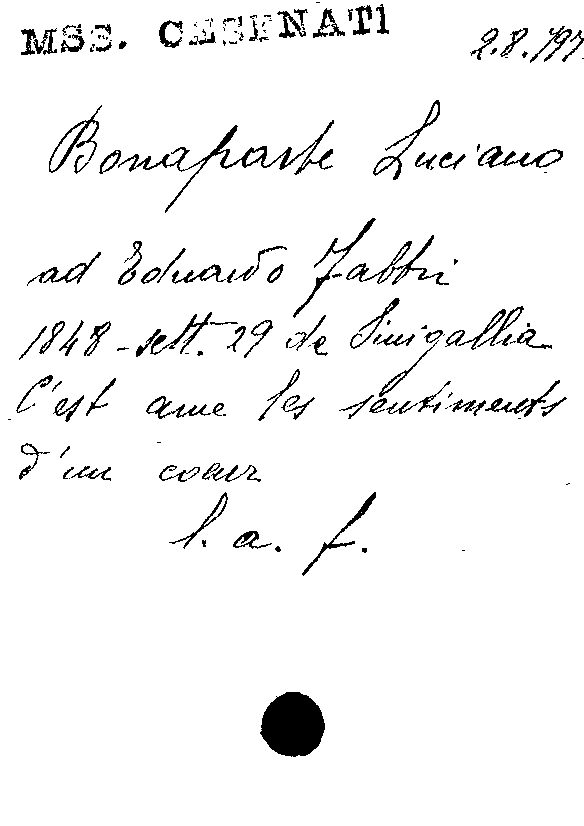 MSS. CESENATI
2.8.197
Bonaparte Luciano
ad Eduardo Fabbri
1848 - sett. 29 de Sinigallia
C'est avec les sentiments
d'un coeur
l. a. f.